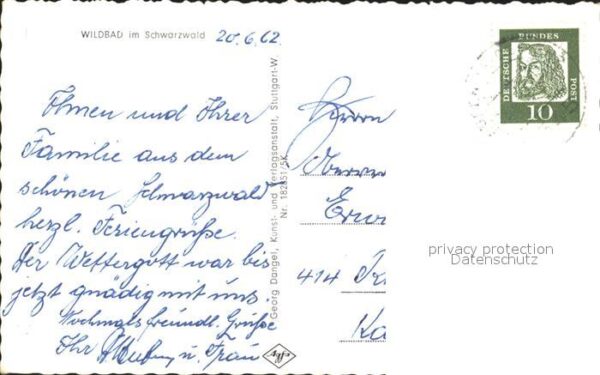 WILDBAD im Schwarzwald
20.6.62.
Ihnen und Ihrer
Familie aus dem
schönen Schwarzwald
herzl. Feriengrüße.
Der Wettergott war bis
jetzt gnädig mit uns.
Nochmals freundl. Grüße
Ihr u. Frau
Georg Dangel, Kunst- und Verlagsanstalt, Stuttgart-W.
Nr. 182851/5K
Agfa
DEUTSCHE BUNDES POST
10
Herrn
Erw
414
Ka
privacy protection
Datenschutz